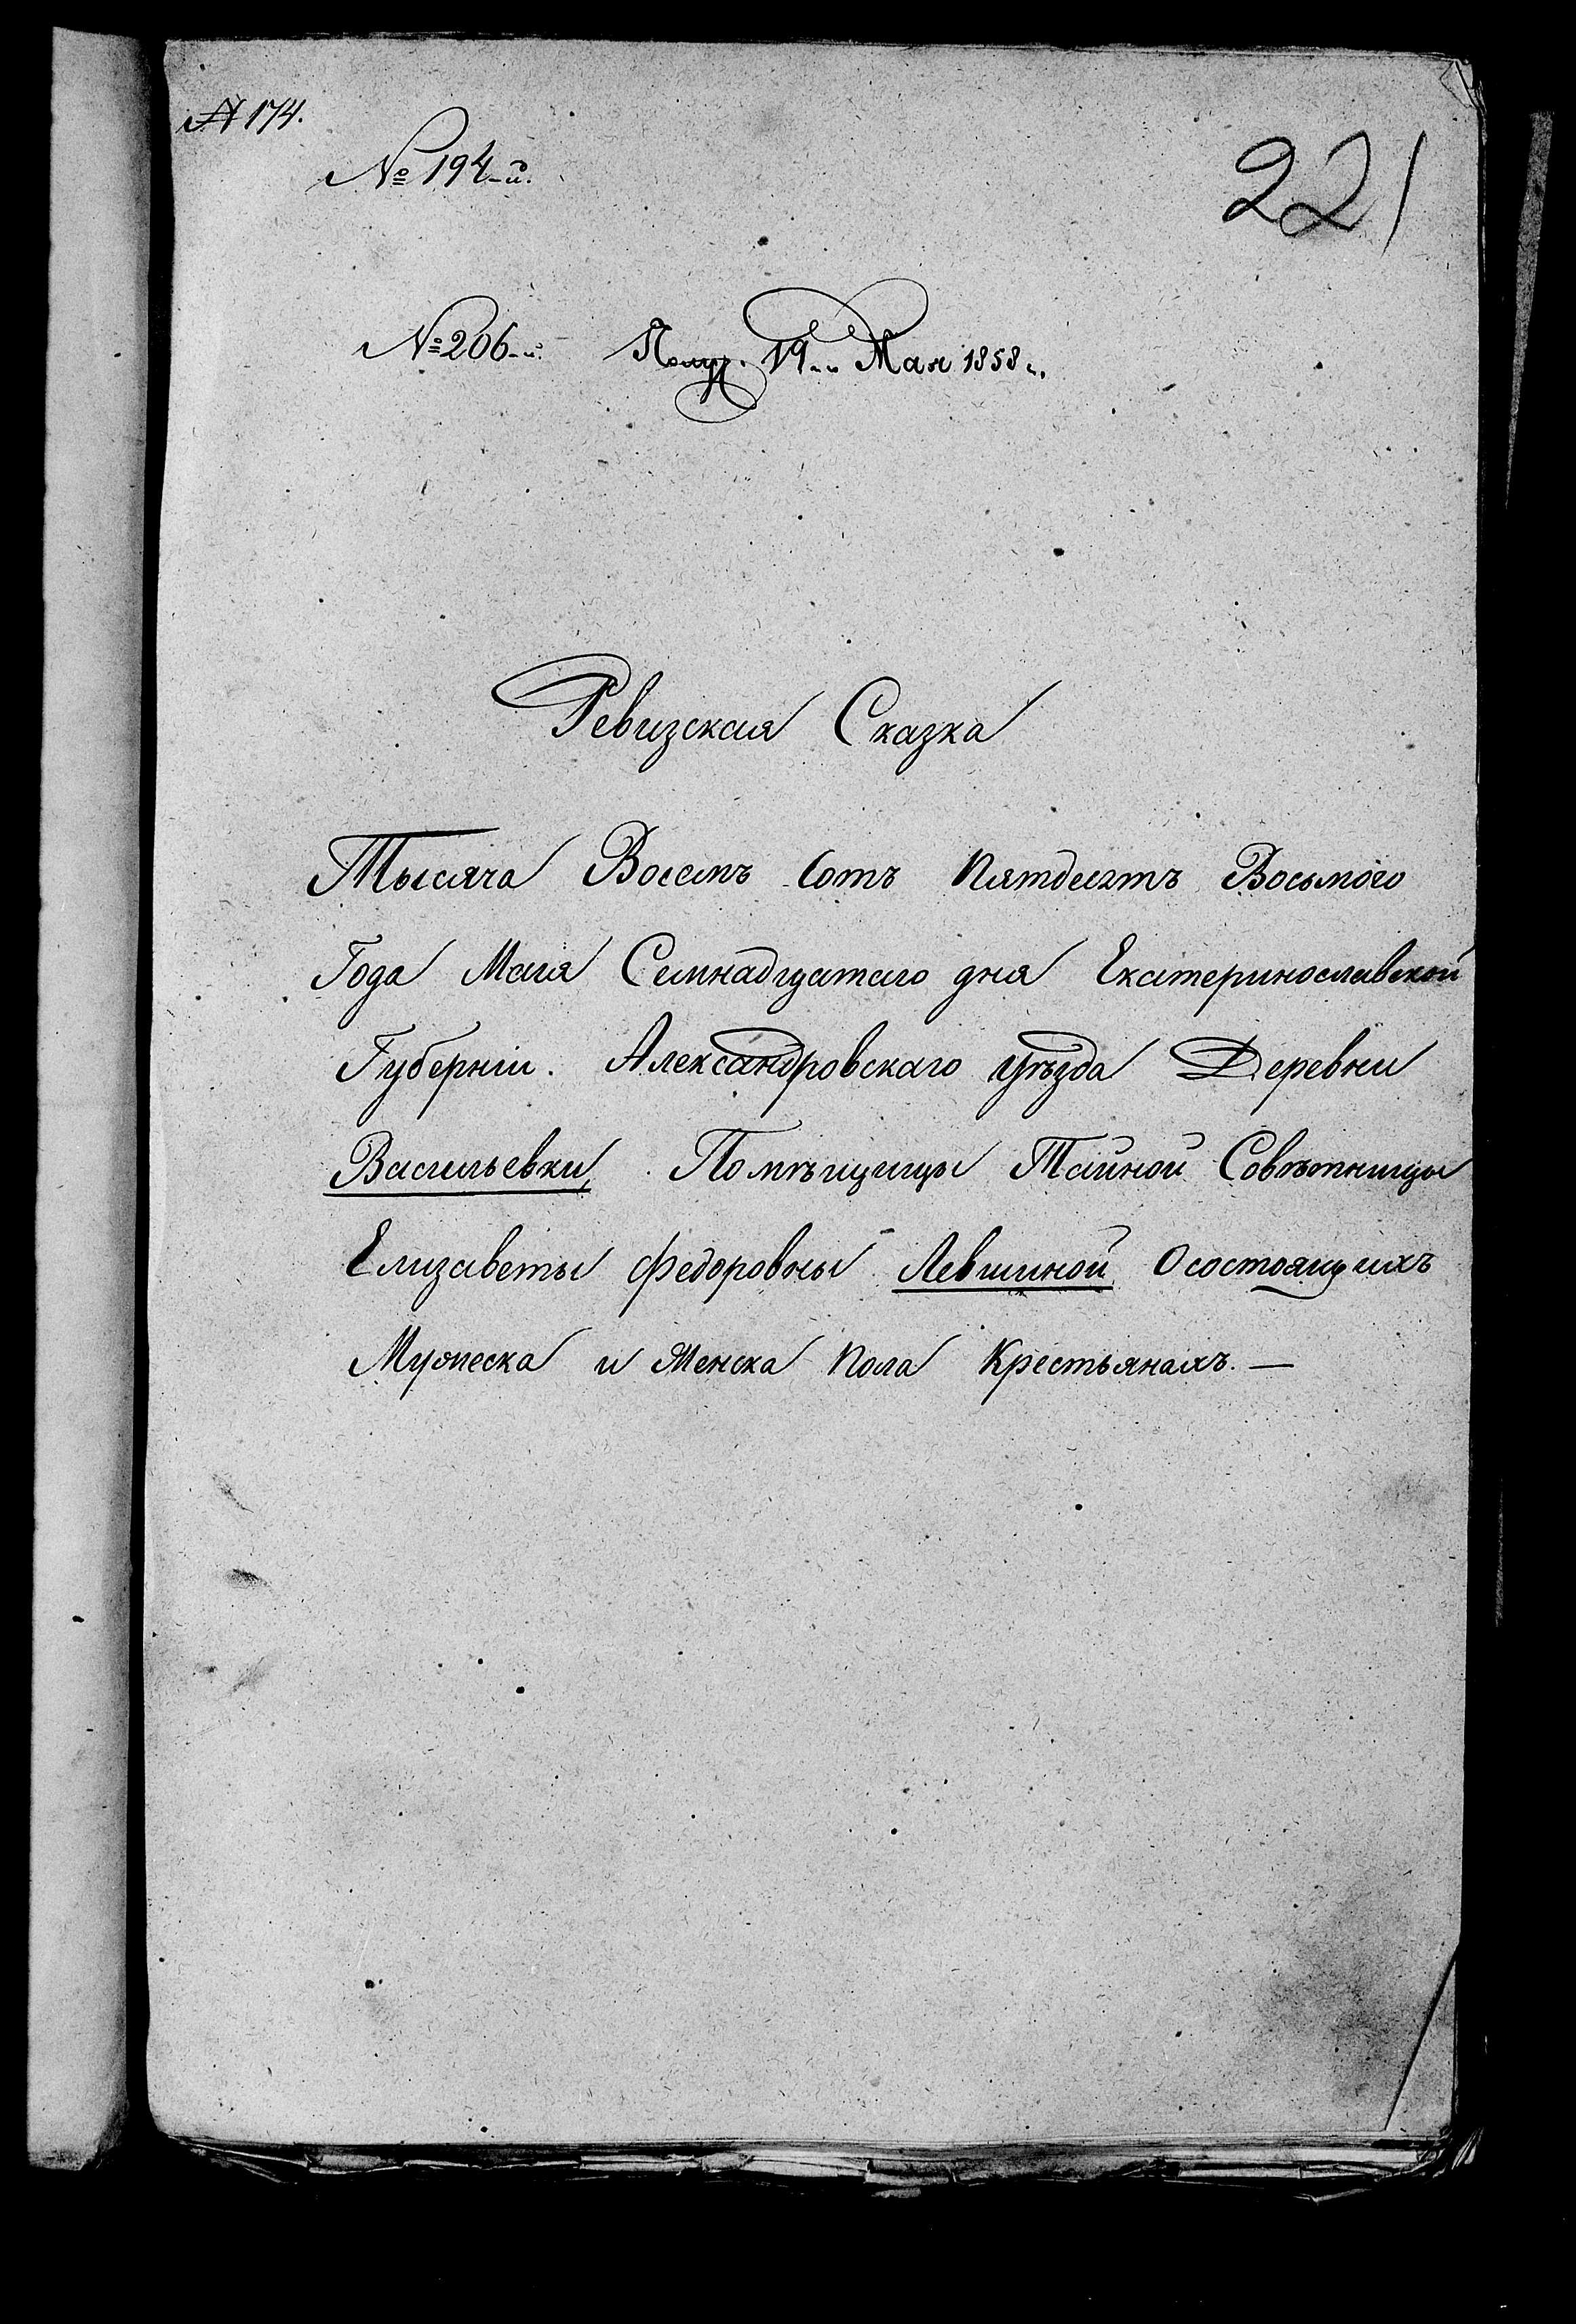 № 174.
№ 194-й.
221
№ 206-й. Получ. 19-го Мая 1858 г.
Ревизская Сказка
Тысяча Восемъ Сотъ Пятдесятъ Восьмого
Года Мая Семнадцатаго дня Екатеринославской
Губерніи. Александровскаго уѣзда Деревни
Васильевки, Помѣщицы Тайной Совѣтницы
Елизаветы Федоровны Левшиной О состоящихъ
Мужеска и Женска Пола Крестьянахъ. —